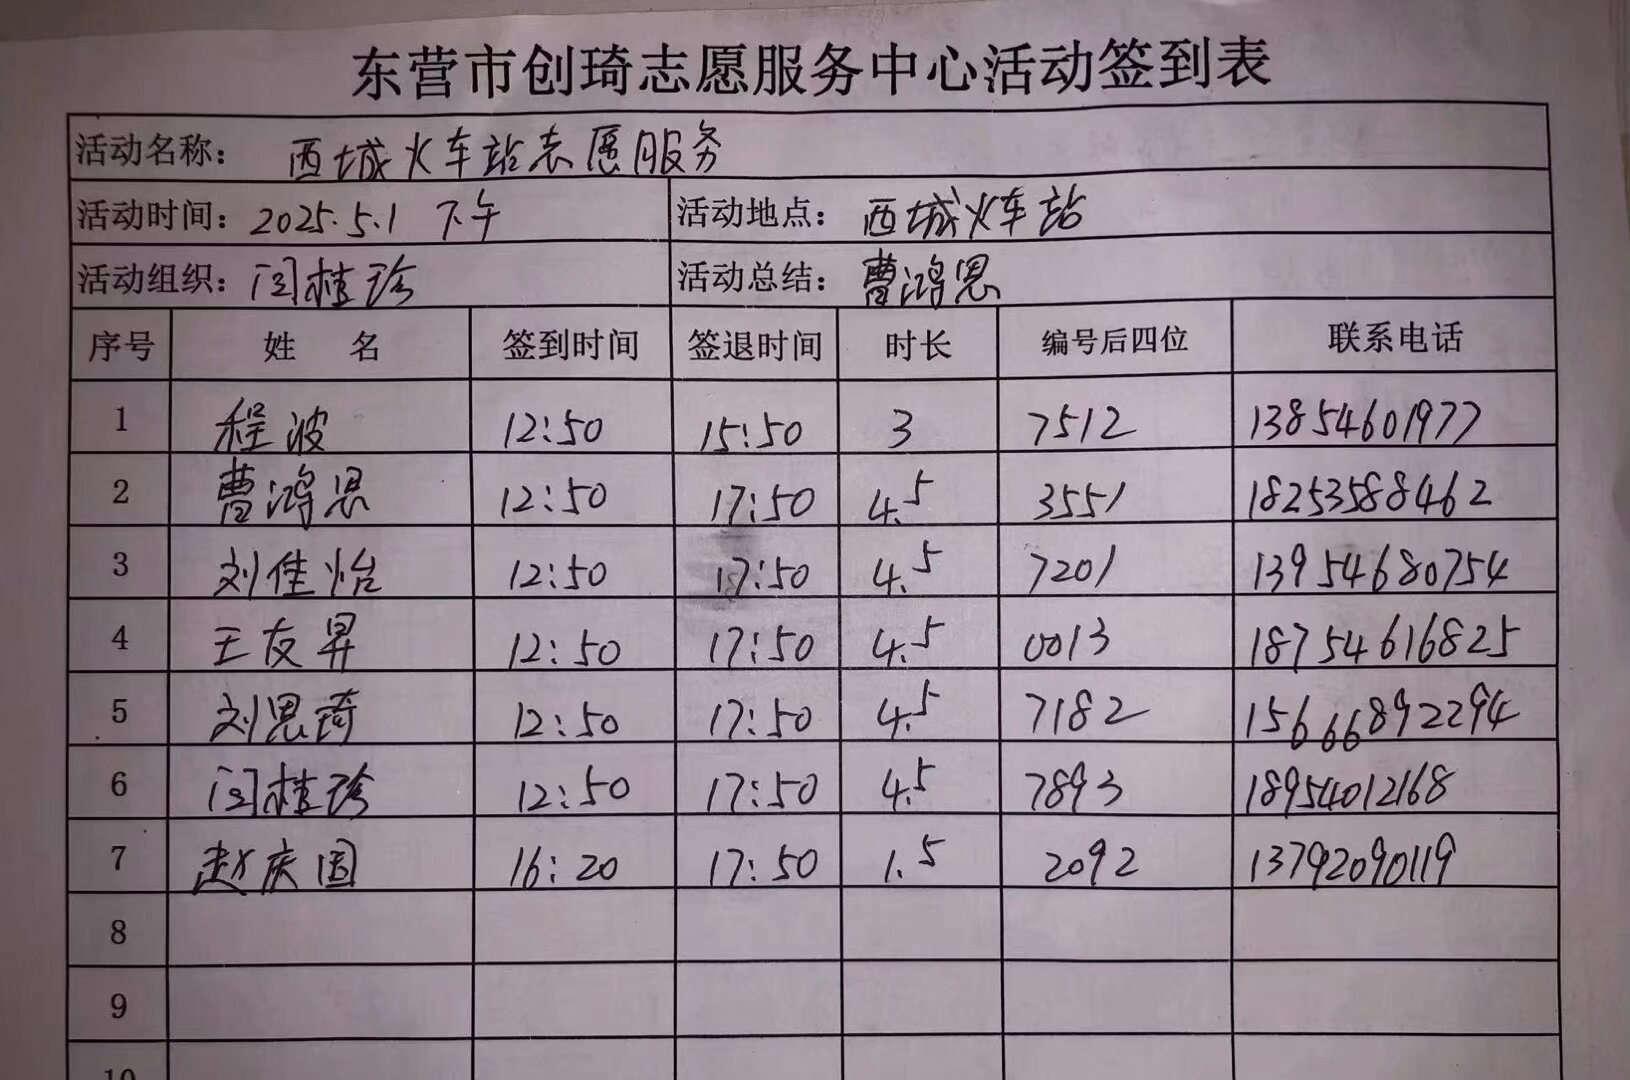 东营市创琦志愿服务中心活动签到表
活动名称： 西城火车站志愿服务
活动时间：2025.5.1 下午 活动地点： 西城火车站
活动组织：闫桂珍 活动总结： 曹鸿恩
序号 姓 名 签到时间 签退时间 时长 编号后四位 联系电话
1 程波 12:50 15:50 3 7512 13854601977
2 曹鸿恩 12:50 17:50 4.5 3551 18253588462
3 刘佳怡 12:50 17:50 4.5 7201 13954680754
4 王友昇 12:50 17:50 4.5 0013 18754616825
5 刘恩琦 12:50 17:50 4.5 7182 15666892294
6 闫桂珍 12:50 17:50 4.5 7893 18954012168
7 赵庆国 16:20 17:50 1.5 2092 13792090119
8
9
10